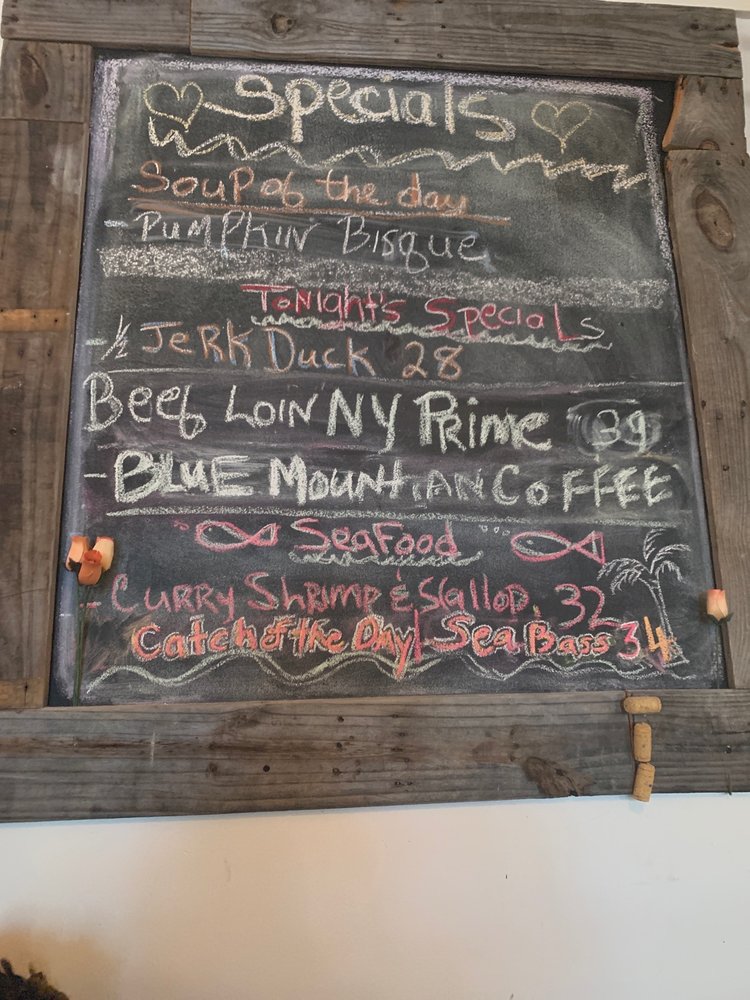 Specials
Soup of the day
- Pumpkin Bisque
Tonight's Specials
- 1/2 Jerk Duck 28
Beef Loin NY Prime 39
- Blue Mountian Coffee
Seafood
- Curry Shrimp & Scallop. 32
Catch of the Day / Sea Bass 34